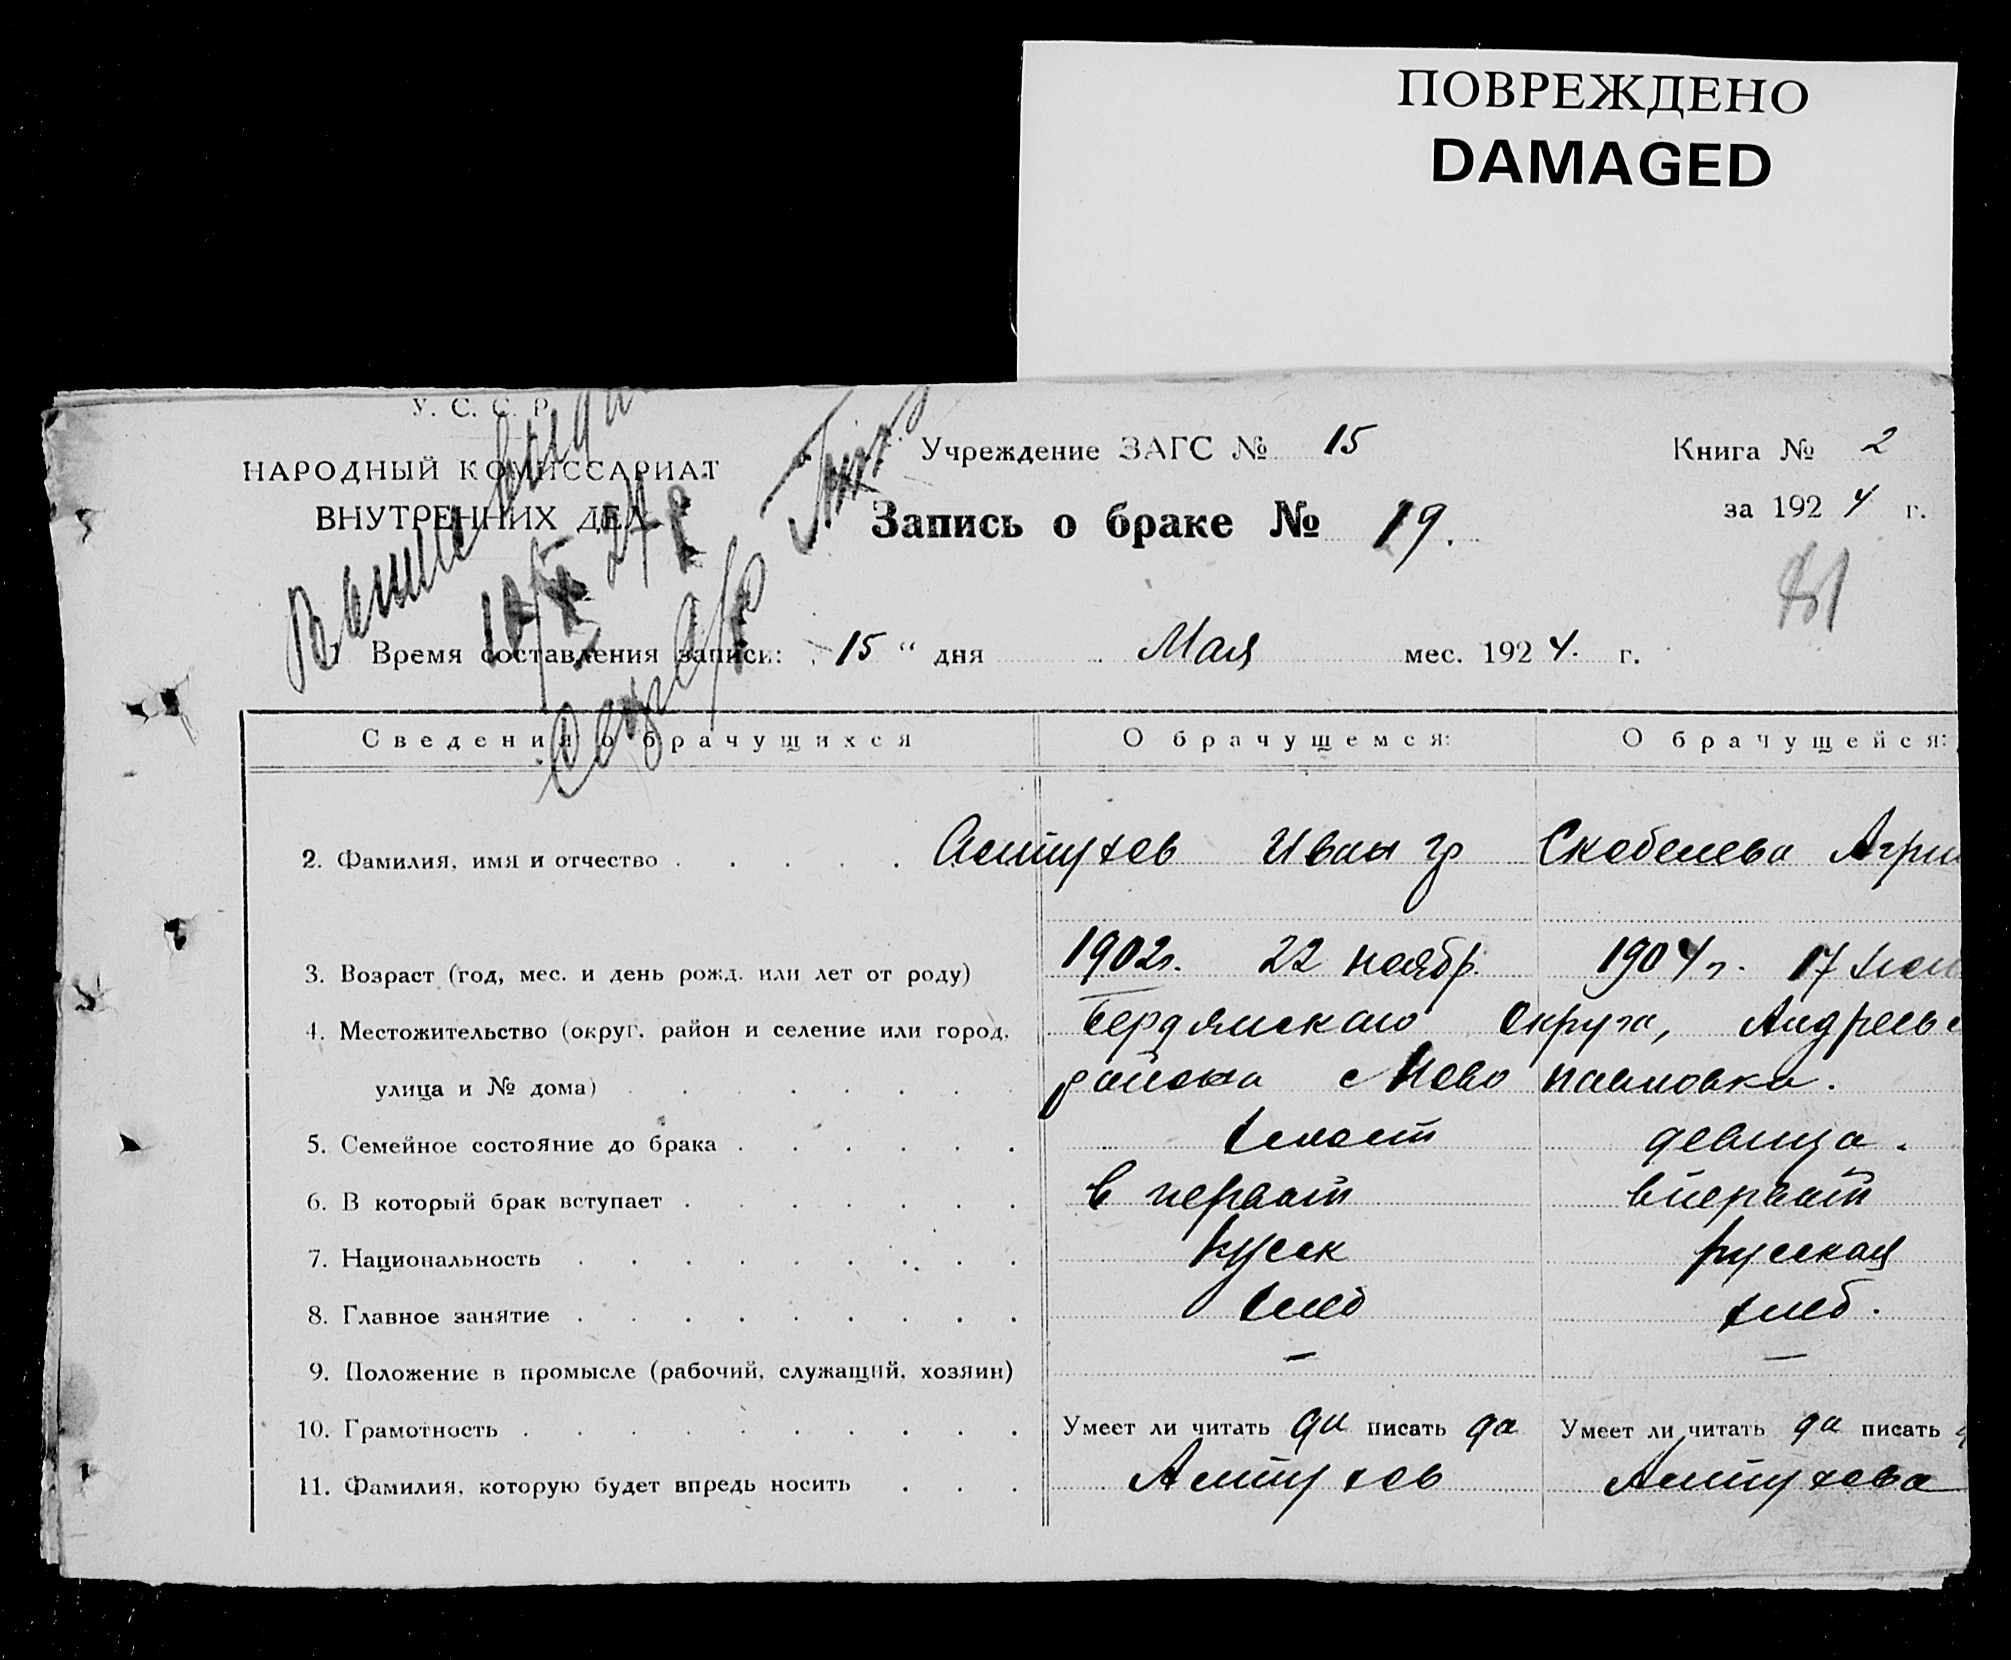 ПОВРЕЖДЕНО
DAMAGED
У. С. С. Р.
НАРОДНЫЙ КОМИССАРИАТ
ВНУТРЕННИХ ДЕЛ
Учреждение ЗАГС № 15
Книга № 2
за 1924 г.
Запись о браке № 19.
Время составления записи: „15“ дня Мая мес. 1924. г.
Сведения о брачущихся О брачущемся: О брачущейся:
2. Фамилия, имя и отчество Иван Гр Скобелева Агрип
3. Возраст (год, мес. и день рожд. или лет от роду) 1902г. 22 ноябр. 1904г. 17
4. Местожительство (округ, район и селение или город, Бердянского Округа, Андреевс
улица и № дома) района с Ново павловка.
5. Семейное состояние до брака холост девица.
6. В который брак вступает в первый впервый
7. Национальность русск русская
8. Главное занятие хлеб хлеб.
9. Положение в промысле (рабочий, служащий, хозяин) — —
10. Грамотность Умеет ли читать да писать да Умеет ли читать да писать
11. Фамилия, которую будет впредь носить Алтухов Алтухова